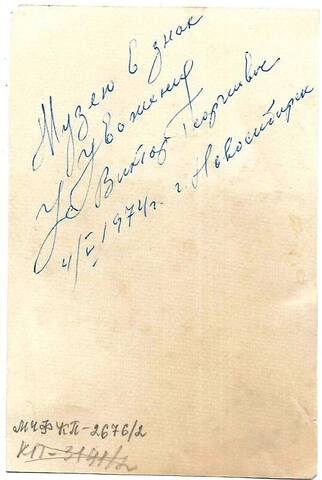 Музею в знак
уважения
Ус Виктор Георгиевич
4/V 1974г. г. Новосибирск
МЧФ КП-2676/2
КП-3141/2